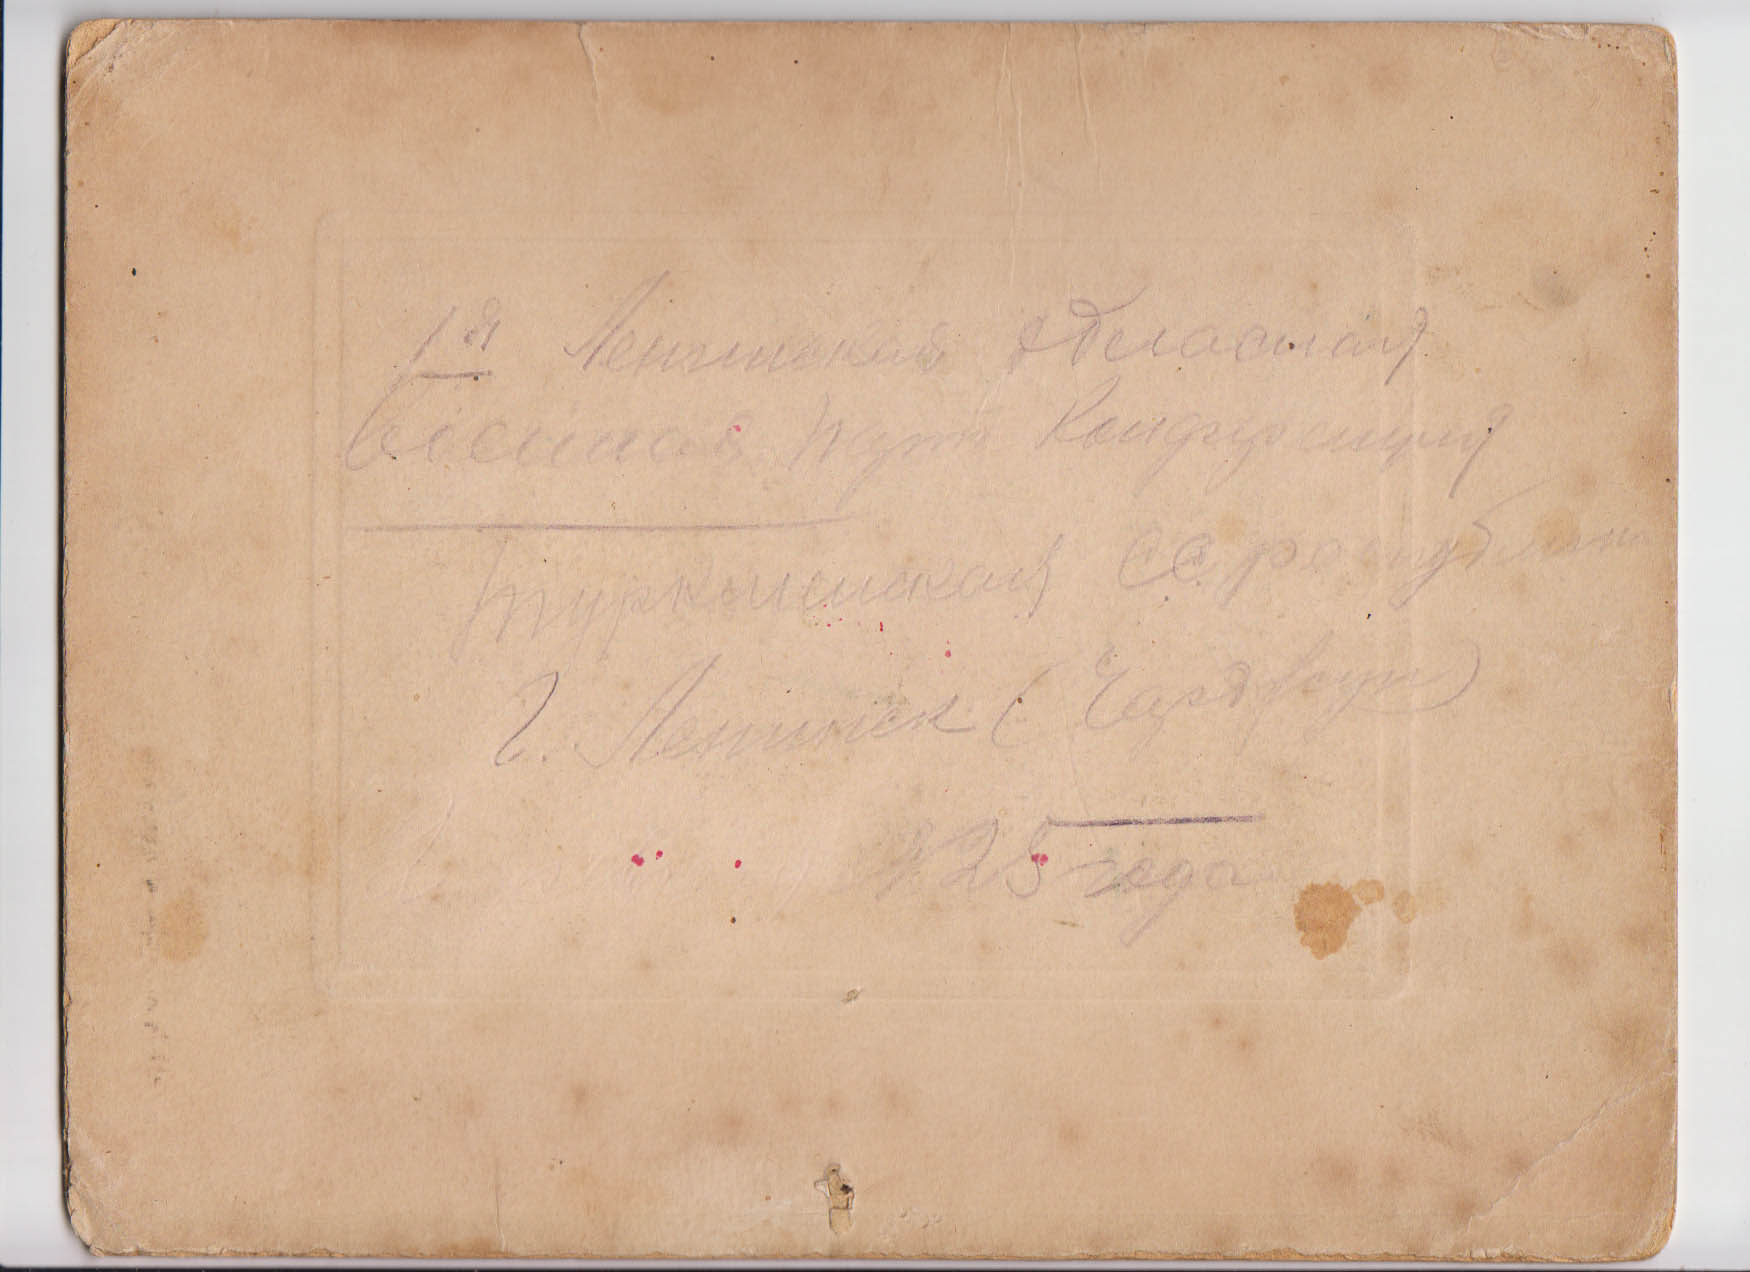 1я Ленинская областная
военная парт Конференция
Туркменская СС республи
г. Ленинск (Чарджуи)
1925 года